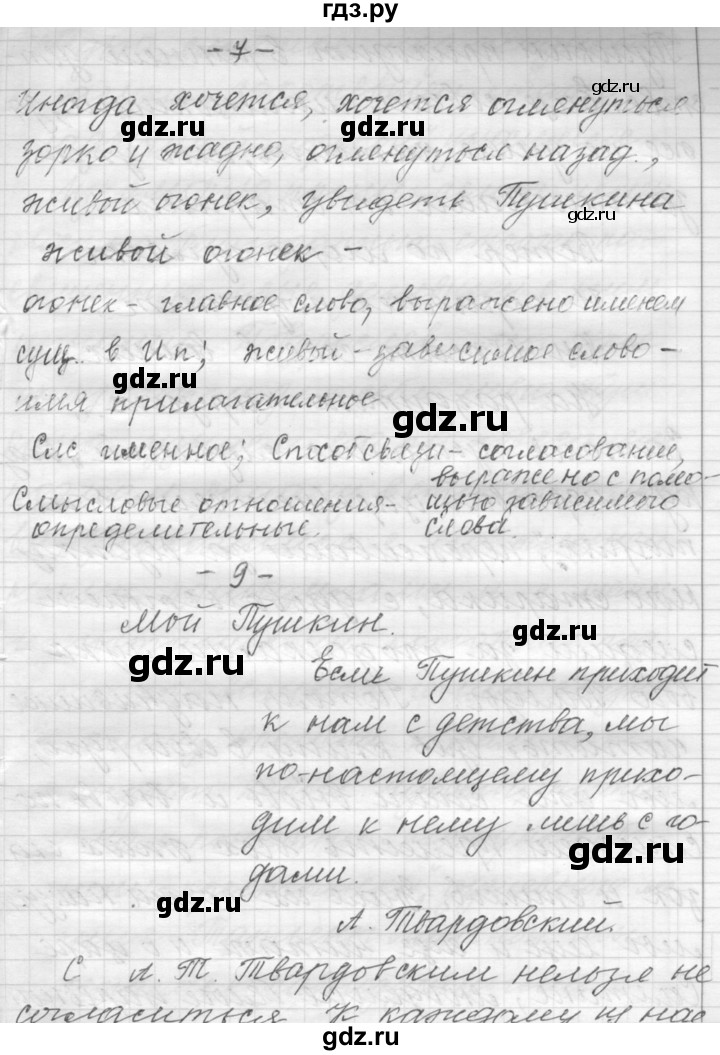 гдз.ру
- 7 -
gdz.ru
Иногда хочется, хочется оглянуться
gdz.ru gdz.ru
зорко и жадно, оглянуться назад,
живой огонек, увидеть Пушкина
gdz.ru
живой огонек -
огонек - главное слово, выражено именем
сущ. в Ип; живой - зависимое слово -
gdz.ru
имя прилагательное
gdz.ru
Слс именное; Способ связи - согласование,
выражено с помо-
Смысловые отношения - щью зависимого
определительные. слова.
- 9 -
Мой Пушкин.
gdz.ru
gdz.ru
Если Пушкин приходит
к нам с детства, мы
по-настоящему прихо-
дим к нему лишь с го-
gdz.ru
дами.
gdz.ru
А. Твардовский.
С А. Т. Твардовским нельзя не
gdz.ru
согласиться. К каждому из нас
gdz.ru